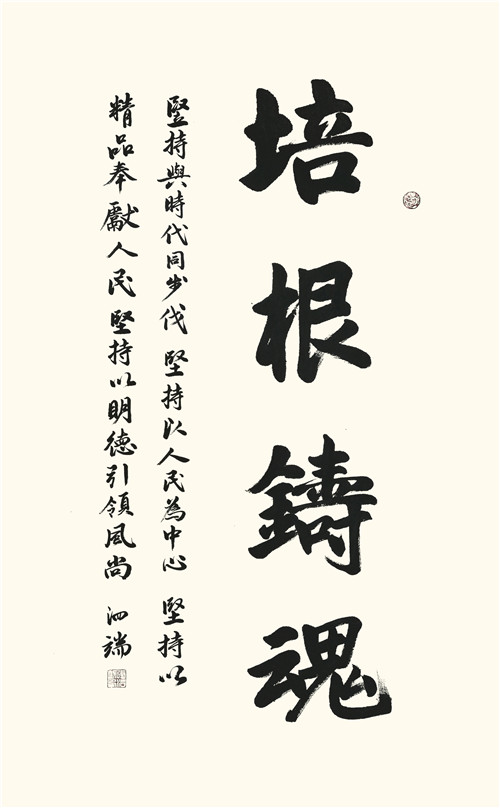 培根鑄魂
堅持與時代同步伐 堅持以人民為中心 堅持以
精品奉獻人民 堅持以明德引領風尚 泗端